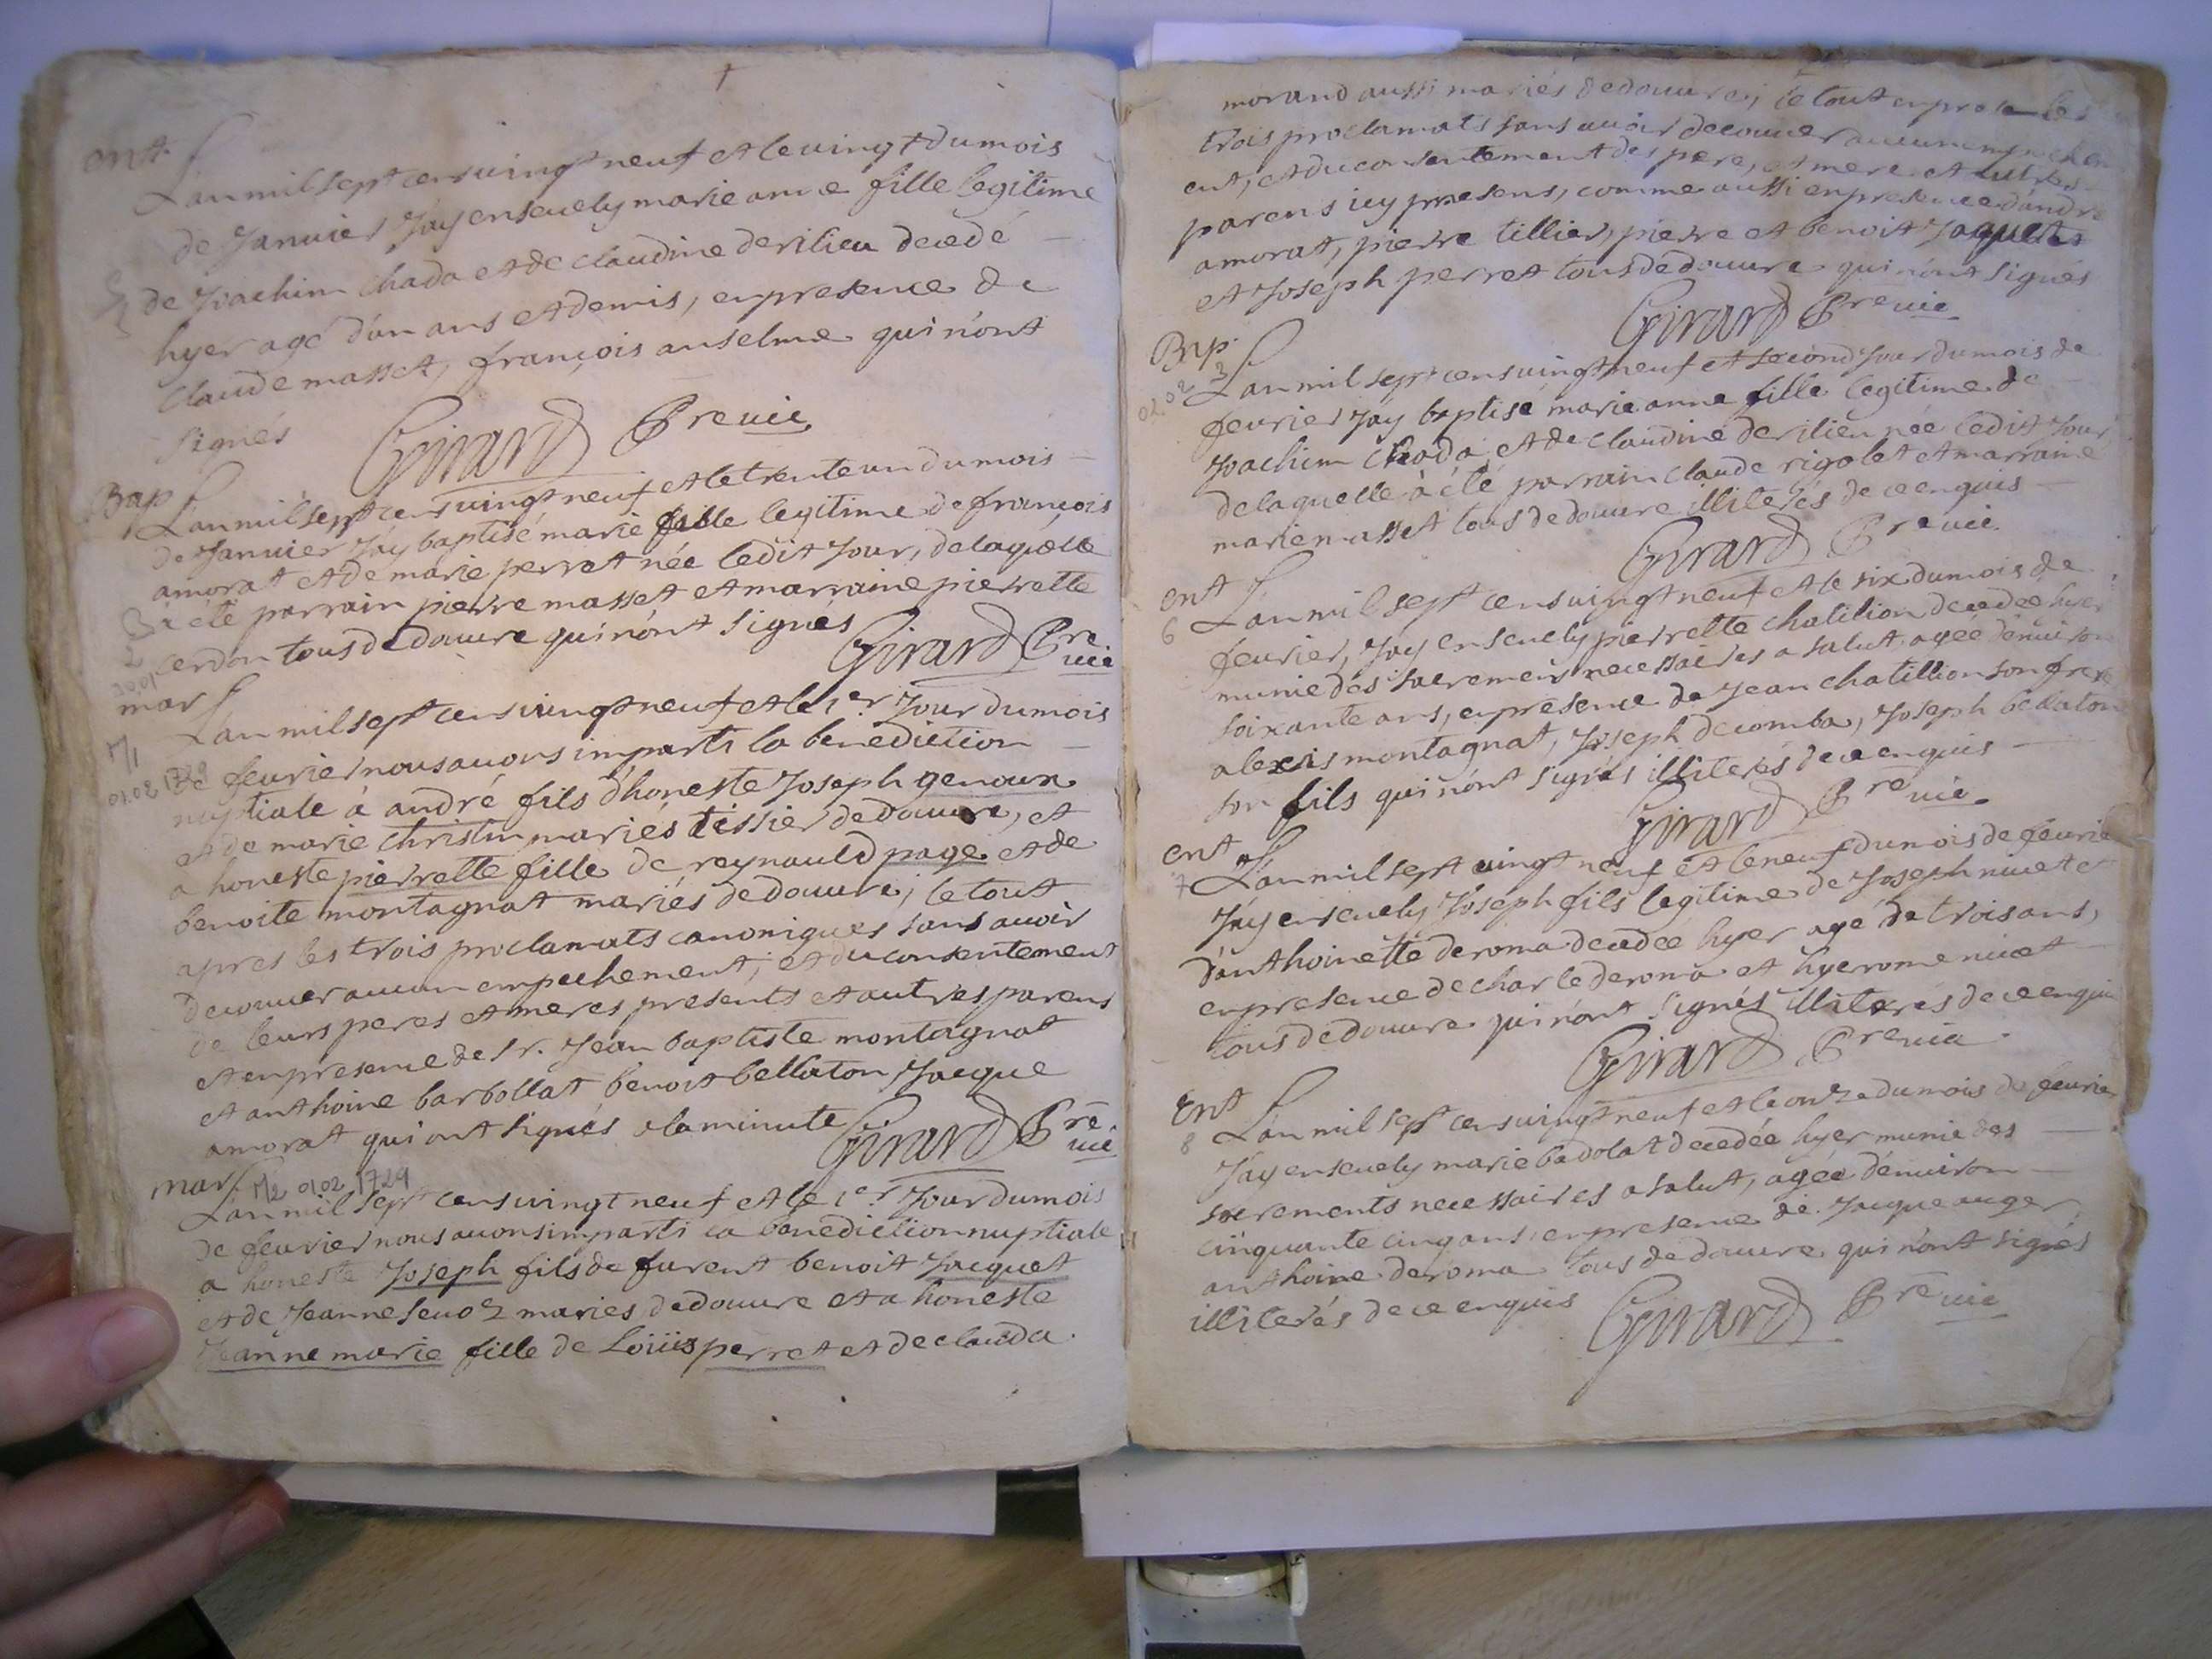 ent.
L'an mil sept cens vingt neuf et le vingt du mois
de Janvier J'ay ensevely marie anne fille legitime
de Joachim chada et de claudine derilieu decedé
hyer agé d'un ans et demis, en presence de
claude masset, françois anselme qui n'ont
signés
Girard Pre vic.
Bap
1
L'an mil sept cens vingt neuf et le trente un du mois
de Janvier J'ay baptisé marie fille legitime de françois
amorat et de marie perrat née ledit Jour, de laquelle
à été parrain pierre masset et marraine pierrette
cerdon tous de douvre qui n'ont signés
Girard Pre vic
mar
M1
01.02 1729
L'an mil sept cens vingt neuf et le 1er Jour du mois
de fevrier nous avons imparti la benediction
nuptiale à andré fils d'honeste Joseph genoux
et de marie christin mariés tissier de douvre, et
a honeste pierrette fille de reynauld page et de
benoite montagnat mariés de douvre; le tout
apres les trois proclamats canoniques sans avoir
decouver aucun empechement; et du consentement
de leurs peres et meres presents et autres parens
et en presence de sr. Jean baptiste montagnat
et anthoine barbollat benoit bellaton Jacque
amorat qui ont signés a la minute
Girard Pre vic
mar
M2 01 02 1729
L'an mil sept cens vingt neuf et le 1er Jour du mois
de fevrier nous avons imparti la benediction nuptiale
a honeste Joseph fils de furent benoit Jacquet
et de Jeanne sevoz maries de douvre et a honeste
Jeanne marie fille de Loüis perret et de clauda
morand aussi mariés de douvre; le tout les
trois proclamats sans avoir decouver aucun empechem
ent, et du consentement des pere, et mere et autres
parens icy presens, comme aussi en presence d'andré
amorat, pierre tillier, pierre et benoit Jaquet
et Joseph perret tous de douvre qui n'ont signés
Girard Pre vic
Bap.
3
02.02
L'an mil sept cens vingt neuf et second Jour du mois de
fevrier J'ay baptisé marie anne fille legitime de
Joachim chada, et de claudine derilieu née ledit Jour
de laquelle à été parrain claude rigolet et marraine
marie masset tous de douvre illiterés de ce enquis
Girard Pre vic.
ent
6
L'an mil sept cens vingt neuf et le six du mois de
fevrier, J'ay ensevely pierrette chatillion decedée hyer
munie des sacremens necessaires a salut, agée d'environ
soixante ans, en presence de Jean chatillion son frere
alexis montagnat, Joseph decomba, Joseph bellaton
son fils qui n'ont signés illiterés de ce enquis
Girard Pre vic.
ent
7
L'an mil sept vingt neuf et le neuf du mois de fevrier
J'ay ensevely Joseph fils legitime de Joseph nivet et
d'anthoinette deroma decedée hyer agé de trois ans,
en presence de charle deroma et hyerome nivet
tous de douvre qui n'ont signés illiterés de ce enquis
Girard Pre vic.
Ent
8
L'an mil sept cens vingt neuf et le onze du mois de fevrier
J'ay ensevely marie badolat decedée hyer munie des
sacrements necessaires a salut, agée d'environ
cinquante cinq ans, en presence de Jacque auger
anthoine deroma tous de douvre qui n'ont signés
illiterés de ce enquis
Girard Pre vic